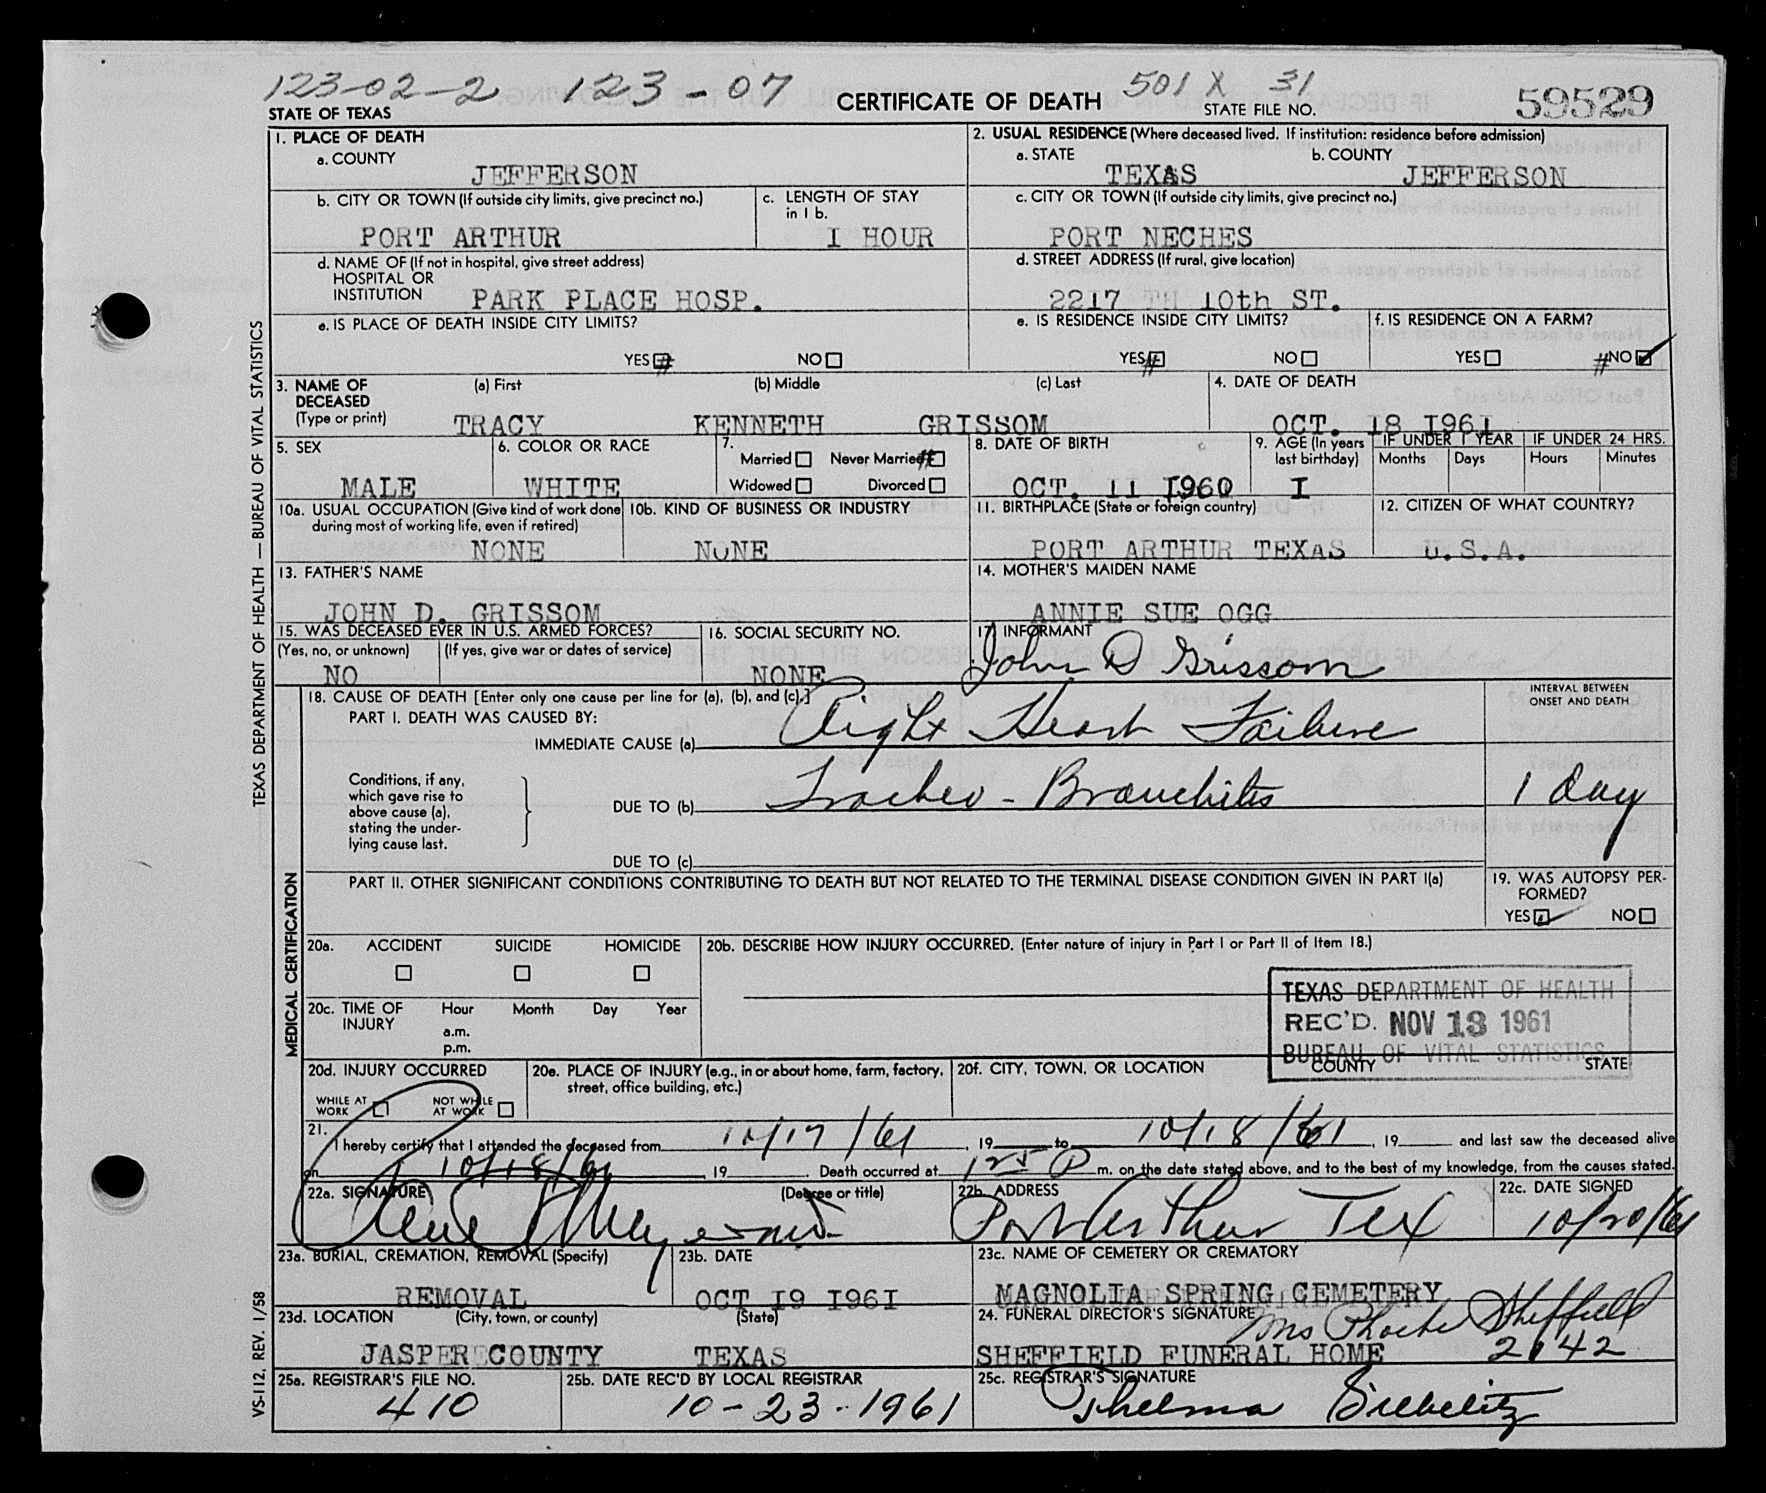 123-02-2 123-07 501 X 31
STATE OF TEXAS CERTIFICATE OF DEATH STATE FILE NO. 59529
1. PLACE OF DEATH
a. COUNTY
JEFFERSON
2. USUAL RESIDENCE (Where deceased lived. If institution: residence before admission)
a. STATE b. COUNTY
TEXAS JEFFERSON
b. CITY OR TOWN (If outside city limits, give precinct no.) c. LENGTH OF STAY in 1 b.
PORT ARTHUR I HOUR
c. CITY OR TOWN (If outside city limits, give precinct no.)
PORT NECHES
d. NAME OF (If not in hospital, give street address)
HOSPITAL OR
INSTITUTION PARK PLACE HOSP.
d. STREET ADDRESS (If rural, give location)
2217 TH 10th ST.
e. IS PLACE OF DEATH INSIDE CITY LIMITS?
YES NO
e. IS RESIDENCE INSIDE CITY LIMITS?
YES NO
f. IS RESIDENCE ON A FARM?
YES NO
3. NAME OF DECEASED (Type or print) (a) First (b) Middle (c) Last
TRACY KENNETH GRISSOM
4. DATE OF DEATH
OCT. 18 1961
5. SEX
MALE
6. COLOR OR RACE
WHITE
7.
Married Never Married
Widowed Divorced
8. DATE OF BIRTH
OCT. 11 1960
9. AGE (In years last birthday)
I
IF UNDER 1 YEAR IF UNDER 24 HRS.
Months Days Hours Minutes
10a. USUAL OCCUPATION (Give kind of work done during most of working life, even if retired)
NONE
10b. KIND OF BUSINESS OR INDUSTRY
NONE
11. BIRTHPLACE (State or foreign country)
PORT ARTHUR TEXAS
12. CITIZEN OF WHAT COUNTRY?
U.S.A.
13. FATHER'S NAME
JOHN D. GRISSOM
14. MOTHER'S MAIDEN NAME
ANNIE SUE OGG
15. WAS DECEASED EVER IN U.S. ARMED FORCES?
(Yes, no, or unknown) (If yes, give war or dates of service)
NO
16. SOCIAL SECURITY NO.
NONE
17. INFORMANT
John D Grissom
18. CAUSE OF DEATH [Enter only one cause per line for (a), (b), and (c).]
PART I. DEATH WAS CAUSED BY:
IMMEDIATE CAUSE (a) Right Heart Failure
INTERVAL BETWEEN ONSET AND DEATH
Conditions, if any,
which gave rise to
above cause (a),
stating the under-
lying cause last.
DUE TO (b) Tracheo - Bronchitis 1 day
DUE TO (c)
PART II. OTHER SIGNIFICANT CONDITIONS CONTRIBUTING TO DEATH BUT NOT RELATED TO THE TERMINAL DISEASE CONDITION GIVEN IN PART I(a)
19. WAS AUTOPSY PER-
FORMED?
YES NO
20a. ACCIDENT SUICIDE HOMICIDE
20b. DESCRIBE HOW INJURY OCCURRED. (Enter nature of injury in Part I or Part II of Item 18.)
20c. TIME OF INJURY Hour Month Day Year
a.m.
p.m.
TEXAS DEPARTMENT OF HEALTH
REC'D. NOV 13 1961
BUREAU OF VITAL STATISTICS
20d. INJURY OCCURRED
WHILE AT WORK NOT WHILE AT WORK
20e. PLACE OF INJURY (e.g., in or about home, farm, factory, street, office building, etc.)
20f. CITY, TOWN, OR LOCATION COUNTY STATE
21.
I hereby certify that I attended the deceased from 10/17/61, 19 to 10/18/61, 19 and last saw the deceased alive
on 10/18/61 19 . Death occurred at 125 P m. on the date stated above, and to the best of my knowledge, from the causes stated.
22a. SIGNATURE (Degree or title)
22b. ADDRESS
Port Arthur Tex
22c. DATE SIGNED
10/20/61
23a. BURIAL, CREMATION, REMOVAL (Specify)
REMOVAL
23b. DATE
OCT 19 1961
23c. NAME OF CEMETERY OR CREMATORY
MAGNOLIA SPRING CEMETERY
23d. LOCATION (City, town, or county) (State)
JASPER COUNTY TEXAS
24. FUNERAL DIRECTOR'S SIGNATURE
Mrs Phoebe Sheffield
SHEFFIELD FUNERAL HOME 2642
25a. REGISTRAR'S FILE NO.
410
25b. DATE REC'D BY LOCAL REGISTRAR
10-23-1961
25c. REGISTRAR'S SIGNATURE
Thelma
TEXAS DEPARTMENT OF HEALTH — BUREAU OF VITAL STATISTICS
MEDICAL CERTIFICATION
VS-112, REV. 1/58